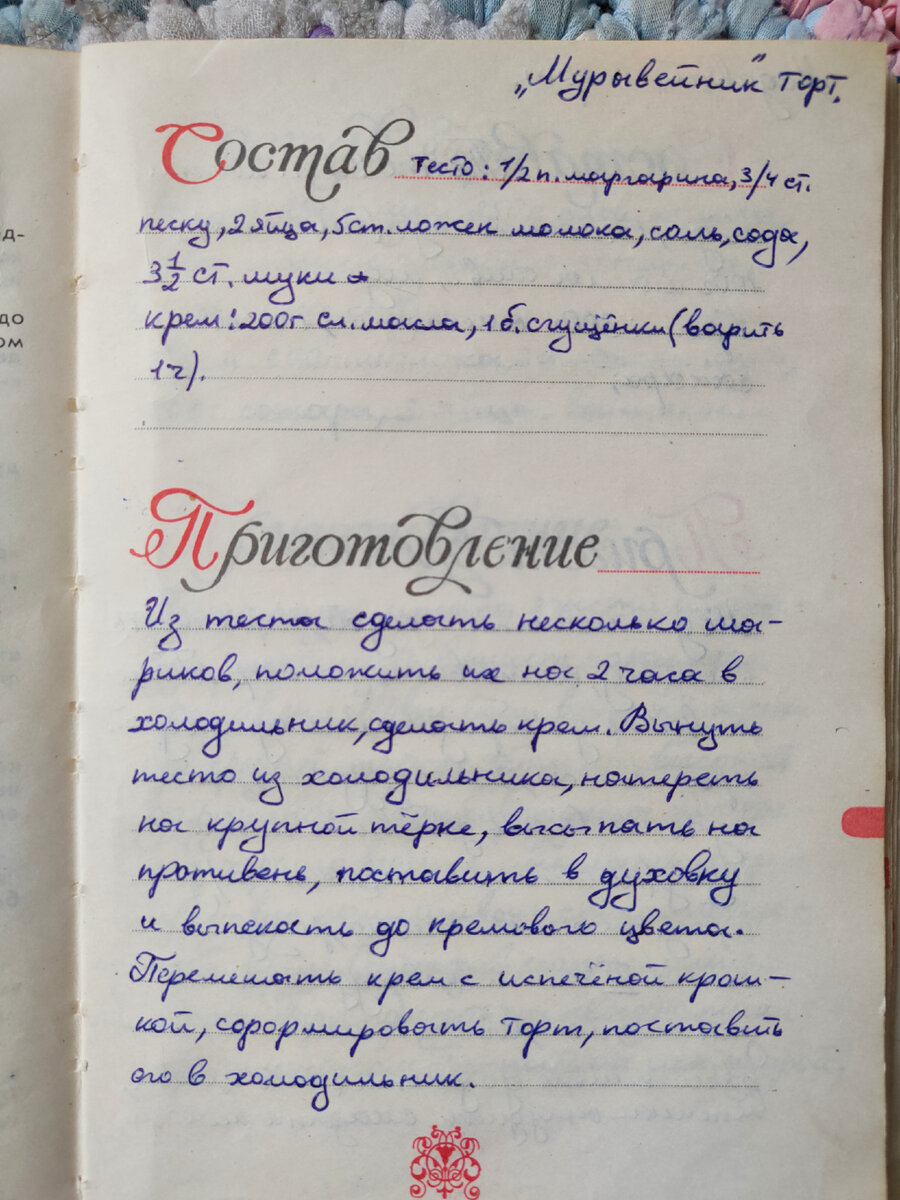 „Мурывейник" торт.
Состав тесто: 1/2 п. маргарина, 3/4 ст.
песку, 2 яйца, 5 ст. ложек молока, соль, сода,
3 1/2 ст. муки
крем: 200г сл. масла, 1 б. сгущёнки (варить
1 ч).
Приготовление
Из теста сделать несколько ша-
риков, положить их на 2 часа в
холодильник, сделать крем. Вынуть
тесто из холодильника, натереть
на крупной тёрке, высыпать на
противень, поставить в духовку
и выпекать до кремового цвета.
Перемешать крем с испечёной крош-
кой, сформировать торт, поставить
его в холодильник.
д-
до
ом